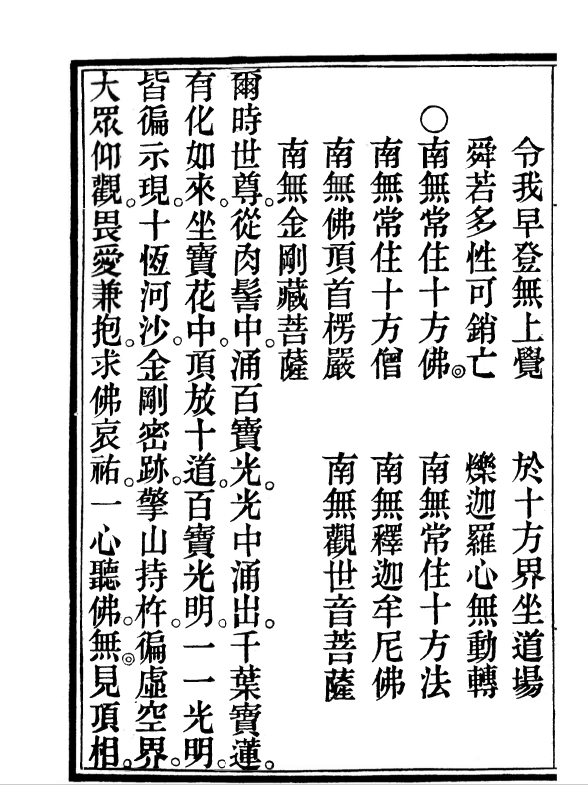 令我早登無上覺　於十方界坐道場
舜若多性可銷亡　爍迦羅心無動轉
○南無常住十方佛◎　南無常住十方法
南無常住十方僧　南無釋迦牟尼佛
南無佛頂首楞嚴　南無觀世音菩薩
南無金剛藏菩薩
爾時世尊。從肉髻中。涌百寶光。光中涌出。千葉寶蓮。
有化如來。坐寶花中。頂放十道。百寶光明。一一光明。
皆徧示現。十恆河沙。金剛密跡。擎山持杵。徧虛空界。
大眾仰觀。畏愛兼抱。求佛哀祐。一心聽佛。無◎見頂相。